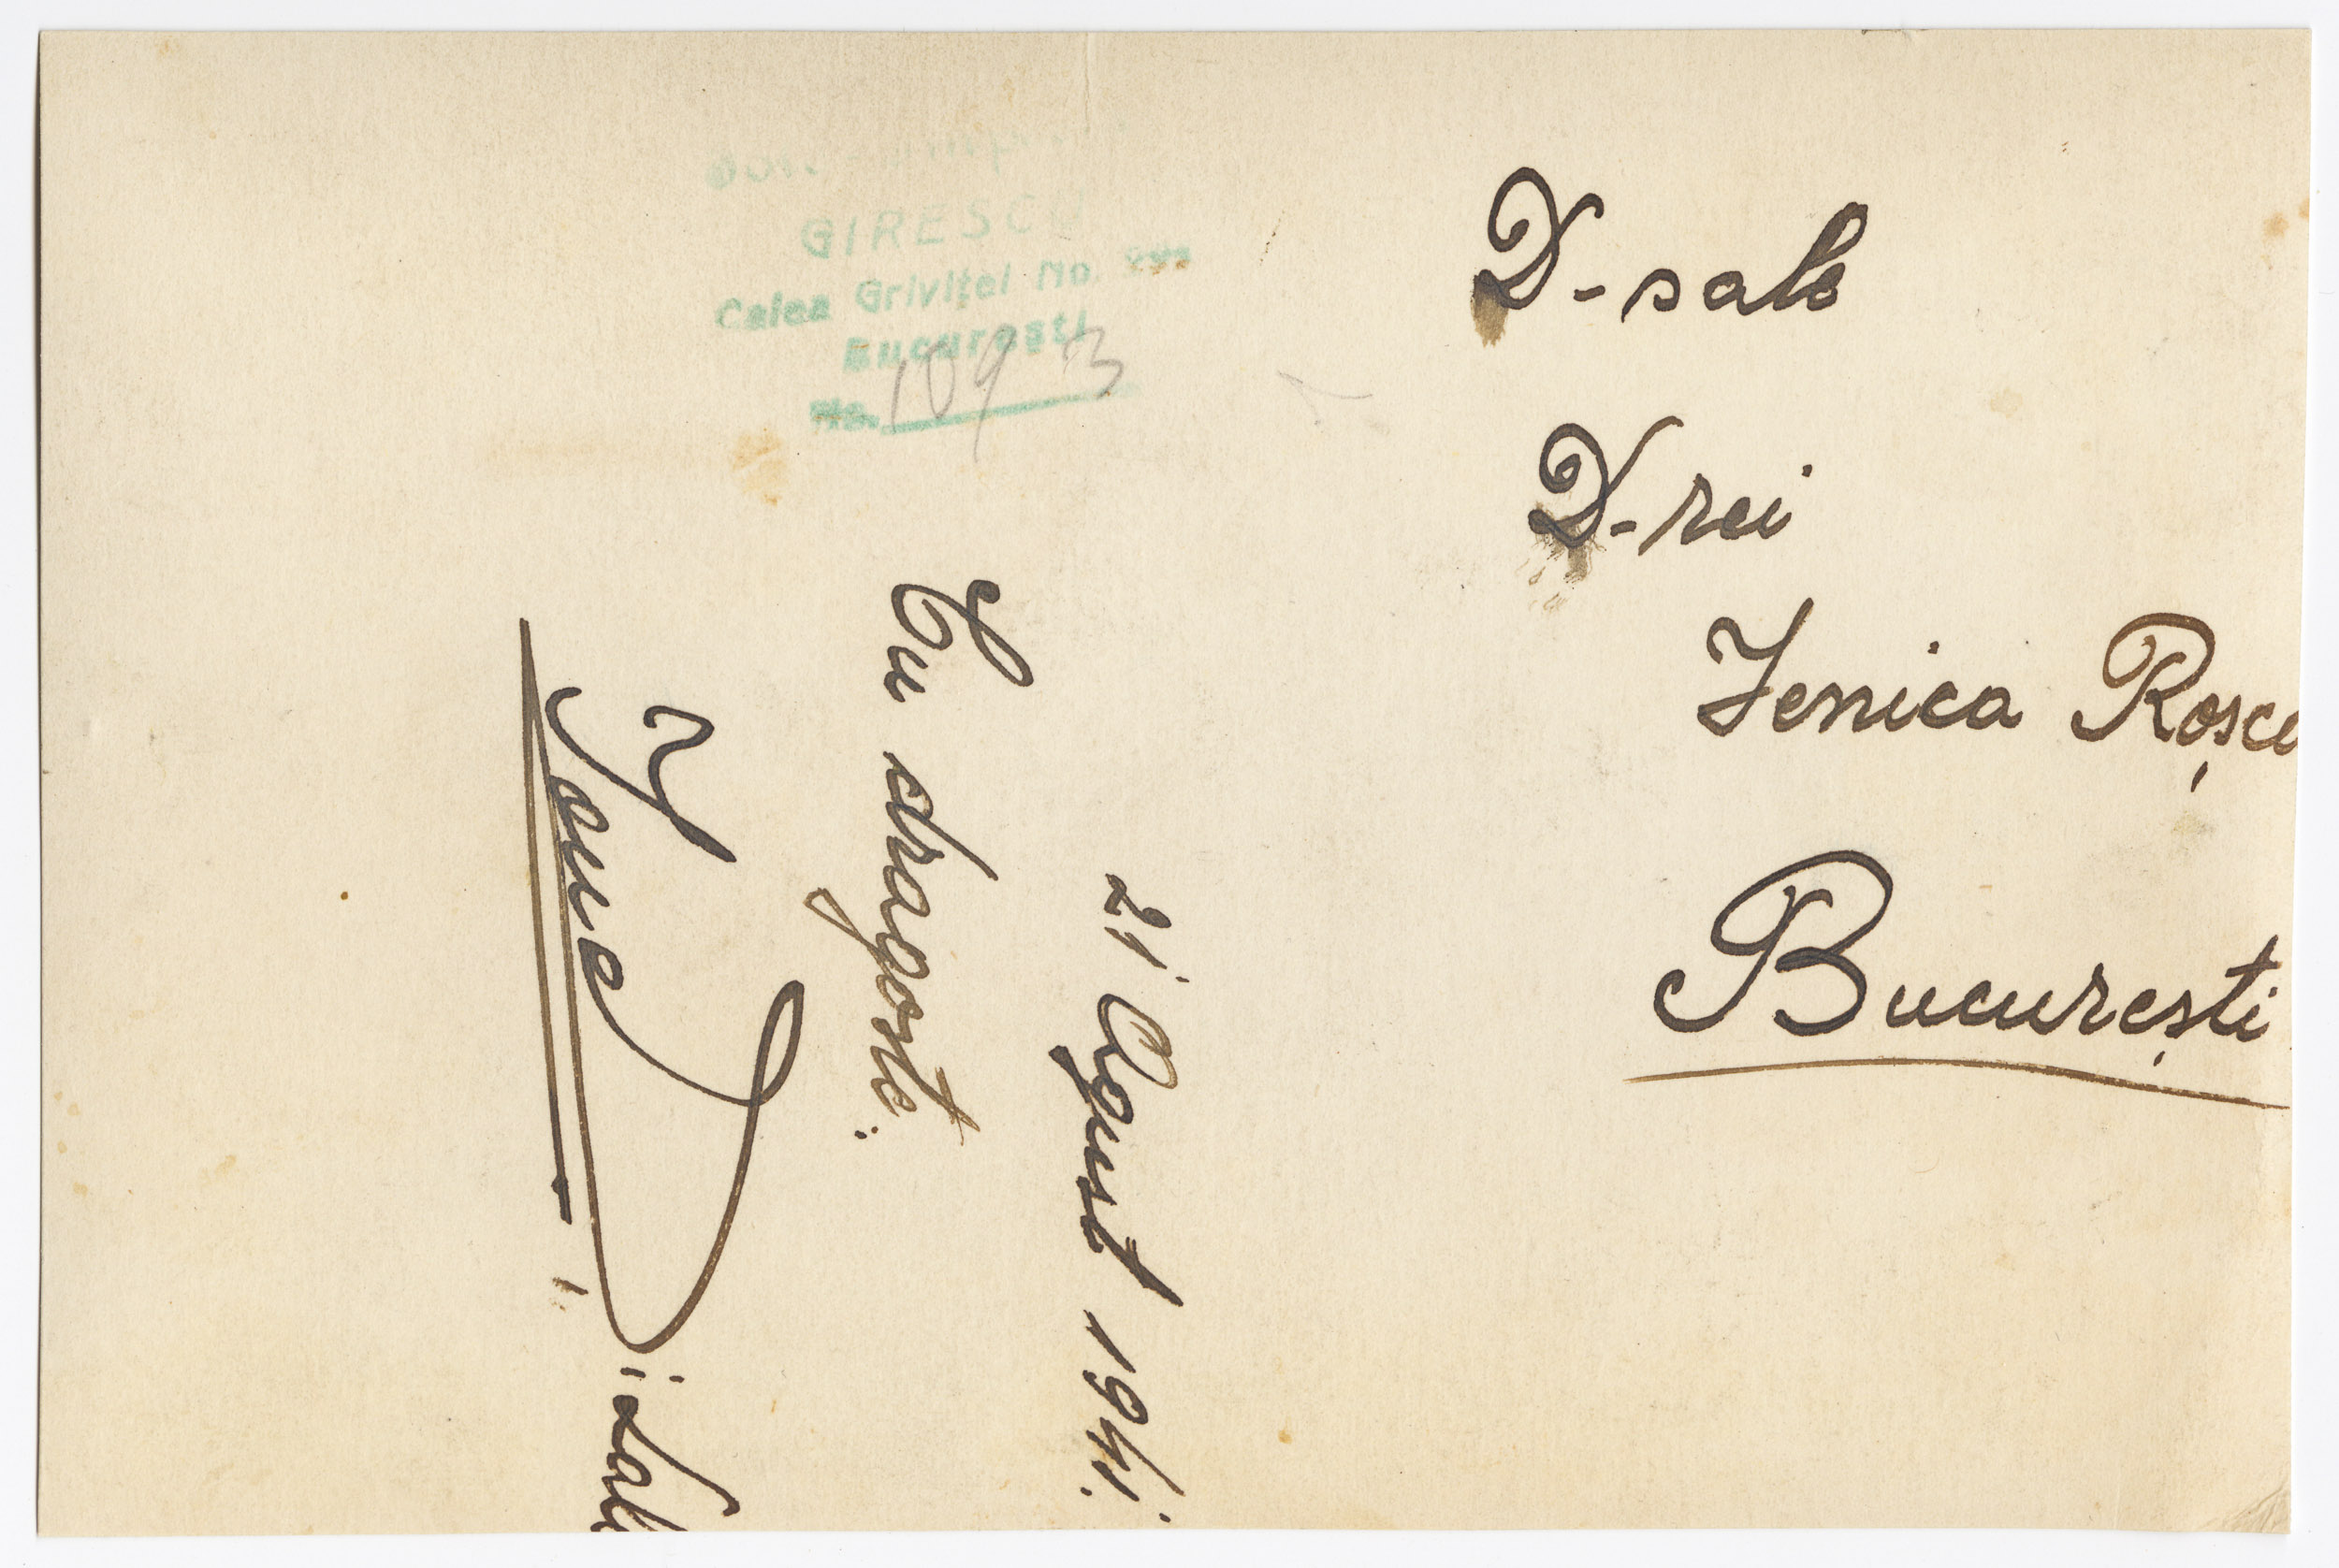 GIRESCU
Calea Griviței No.
București
No. 1093
D-sale
D-rei
Jenica Roșcu
București
21 August 1941.
Cu dragoste.